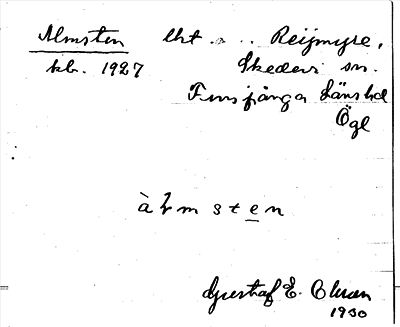 Almsten lht . . . Reijmyre,
kb. 1927 Skedevi sn.
Finspånga Länshd
Ögl
àɫmsten
Gustaf E. Olsson
1930